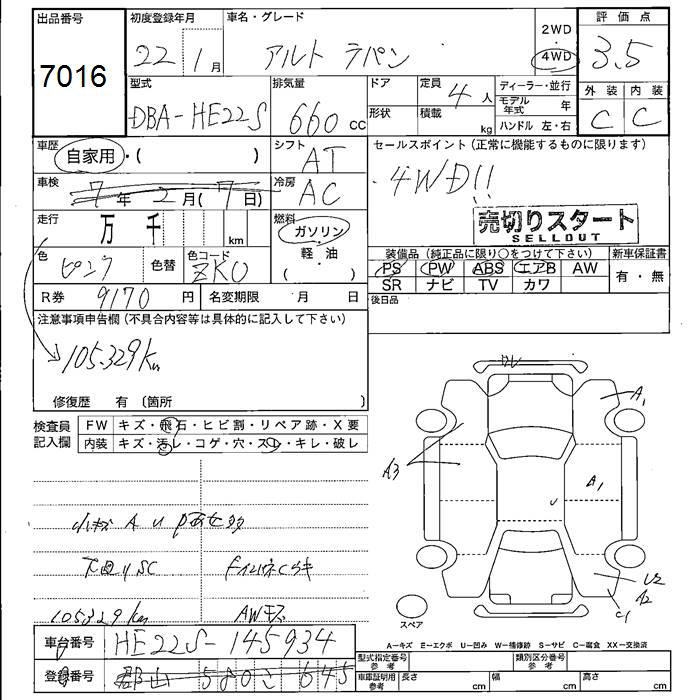 出品番号 初度登録年月 車名・グレード 2WD・4WD 評価点
7016 22年 1月 アルト ラパン 3.5
型式 排気量 ドア 定員 4人 ディーラー・並行 外装 内装
DBA-HE22S 660cc 形状 積載 kg モデル年式 年 C C
ハンドル 左・右
車歴 自家用・( ) シフト AT セールスポイント(正常に機能するものに限ります)
車検 7年 2月(7日) 冷房 AC 4WD!!
走行 万 千 km 燃料 ガソリン 軽・油 ( )
売切りスタート
SELLOUT
色 ピンク 色替 色コード ZKO
装備品(純正品に限り○をつけて下さい) 新車保証書
PS PW ABS エアB AW 有・無
SR ナビ TV カワ
R券 9170円 名変期限 月 日 後日品
注意事項申告欄(不具合内容等は具体的に記入して下さい)
105.329km
修復歴 有 〔箇所 〕
検査員記入欄 FW キズ・飛石・ヒビ割・リペア跡・X要
内装 キズ・汚レ・コゲ・穴・スレ・キレ・破レ
A1
A3
A1
U
U2
A2
C1
小キズ A U
下回りSC
105329km
スペア
A-キズ E-エクボ U-凹み W-補修跡 S-サビ C-腐食 XX-交換済
車台番号 HE22S-145934
登録番号 郡山 580 645
型式指定番号 参考 類別区分番号 参考
車庫証明用 参考 長さ cm 幅 cm 高さ cm